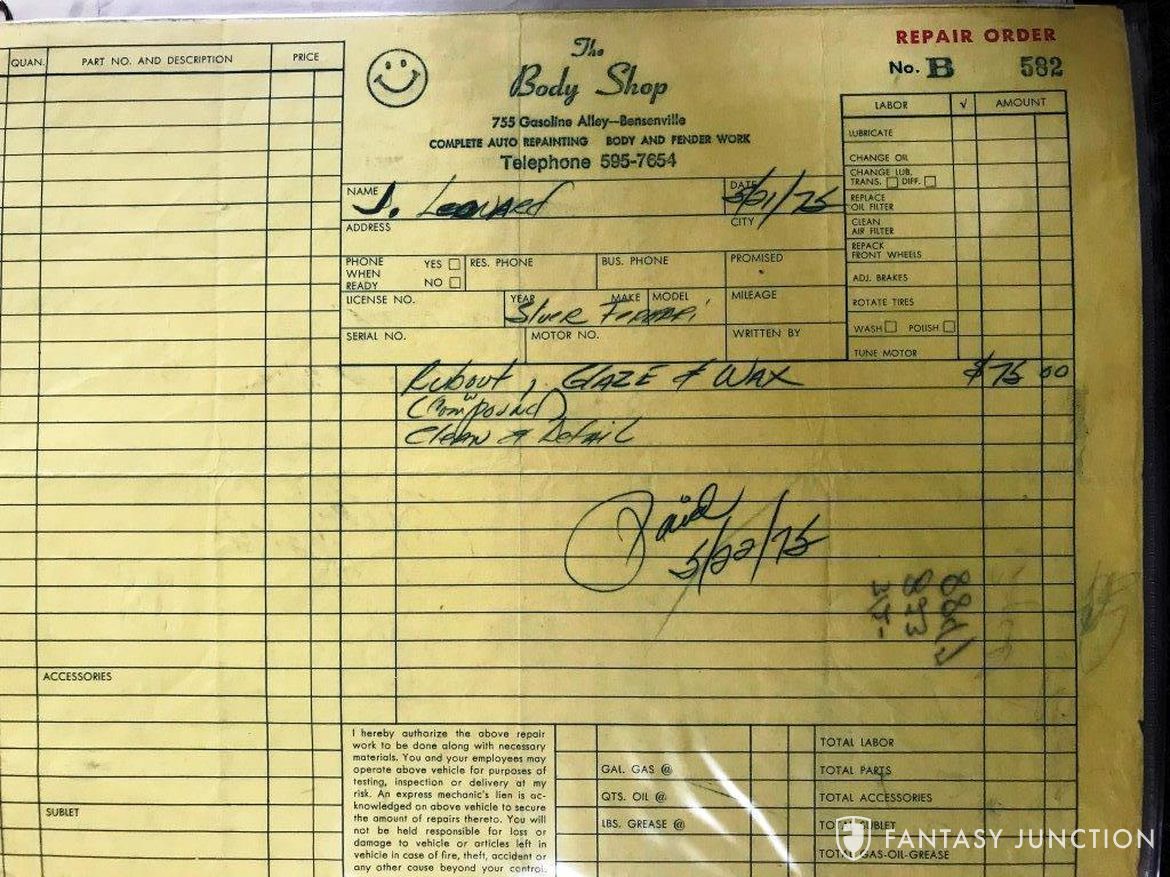 REPAIR ORDER
No. B 582
The
Body Shop
755 Gasoline Alley—Bensenville
COMPLETE AUTO REPAINTING BODY AND FENDER WORK
Telephone 595-7654
QUAN. PART NO. AND DESCRIPTION PRICE
ACCESSORIES
SUBLET
NAME J. Leonard
DATE 5/21/75
ADDRESS
CITY
PHONE WHEN READY YES NO
RES. PHONE
BUS. PHONE
PROMISED
LICENSE NO.
YEAR MAKE MODEL
Silver Ferrari
MILEAGE
SERIAL NO.
MOTOR NO.
WRITTEN BY
LABOR √ AMOUNT
LUBRICATE
CHANGE OIL
CHANGE LUB.
TRANS. DIFF.
REPLACE
OIL FILTER
CLEAN
AIR FILTER
REPACK
FRONT WHEELS
ADJ. BRAKES
ROTATE TIRES
WASH POLISH
TUNE MOTOR
Rubout, GLAZE & WAX $75 00
(Compound)
Clean & Detail
Paid
5/22/75
I hereby authorize the above repair
work to be done along with necessary
materials. You and your employees may
operate above vehicle for purposes of
testing, inspection or delivery at my
risk. An express mechanic's lien is ac-
knowledged on above vehicle to secure
the amount of repairs thereto. You will
not be held responsible for loss or
damage to vehicle or articles left in
vehicle in case of fire, theft, accident or
any other cause beyond your control.
GAL. GAS @
QTS. OIL @
LBS. GREASE @
TOTAL LABOR
TOTAL PARTS
TOTAL ACCESSORIES
TOTAL SUBLET
TOTAL GAS-OIL-GREASE
FANTASY JUNCTION